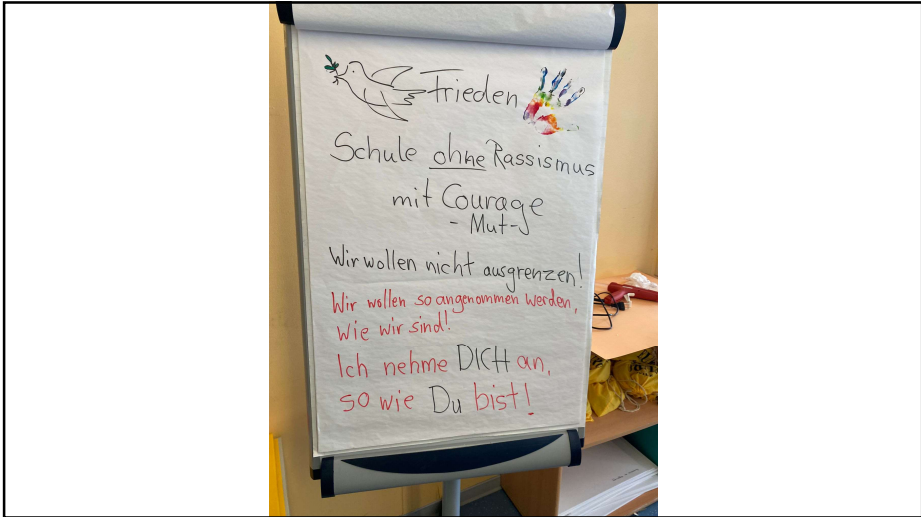 Frieden
Schule ohne Rassismus
mit Courage
- Mut-
Wir wollen nicht ausgrenzen!
Wir wollen so angenommen werden,
wie wir sind!
Ich nehme DICH an,
so wie Du bist!